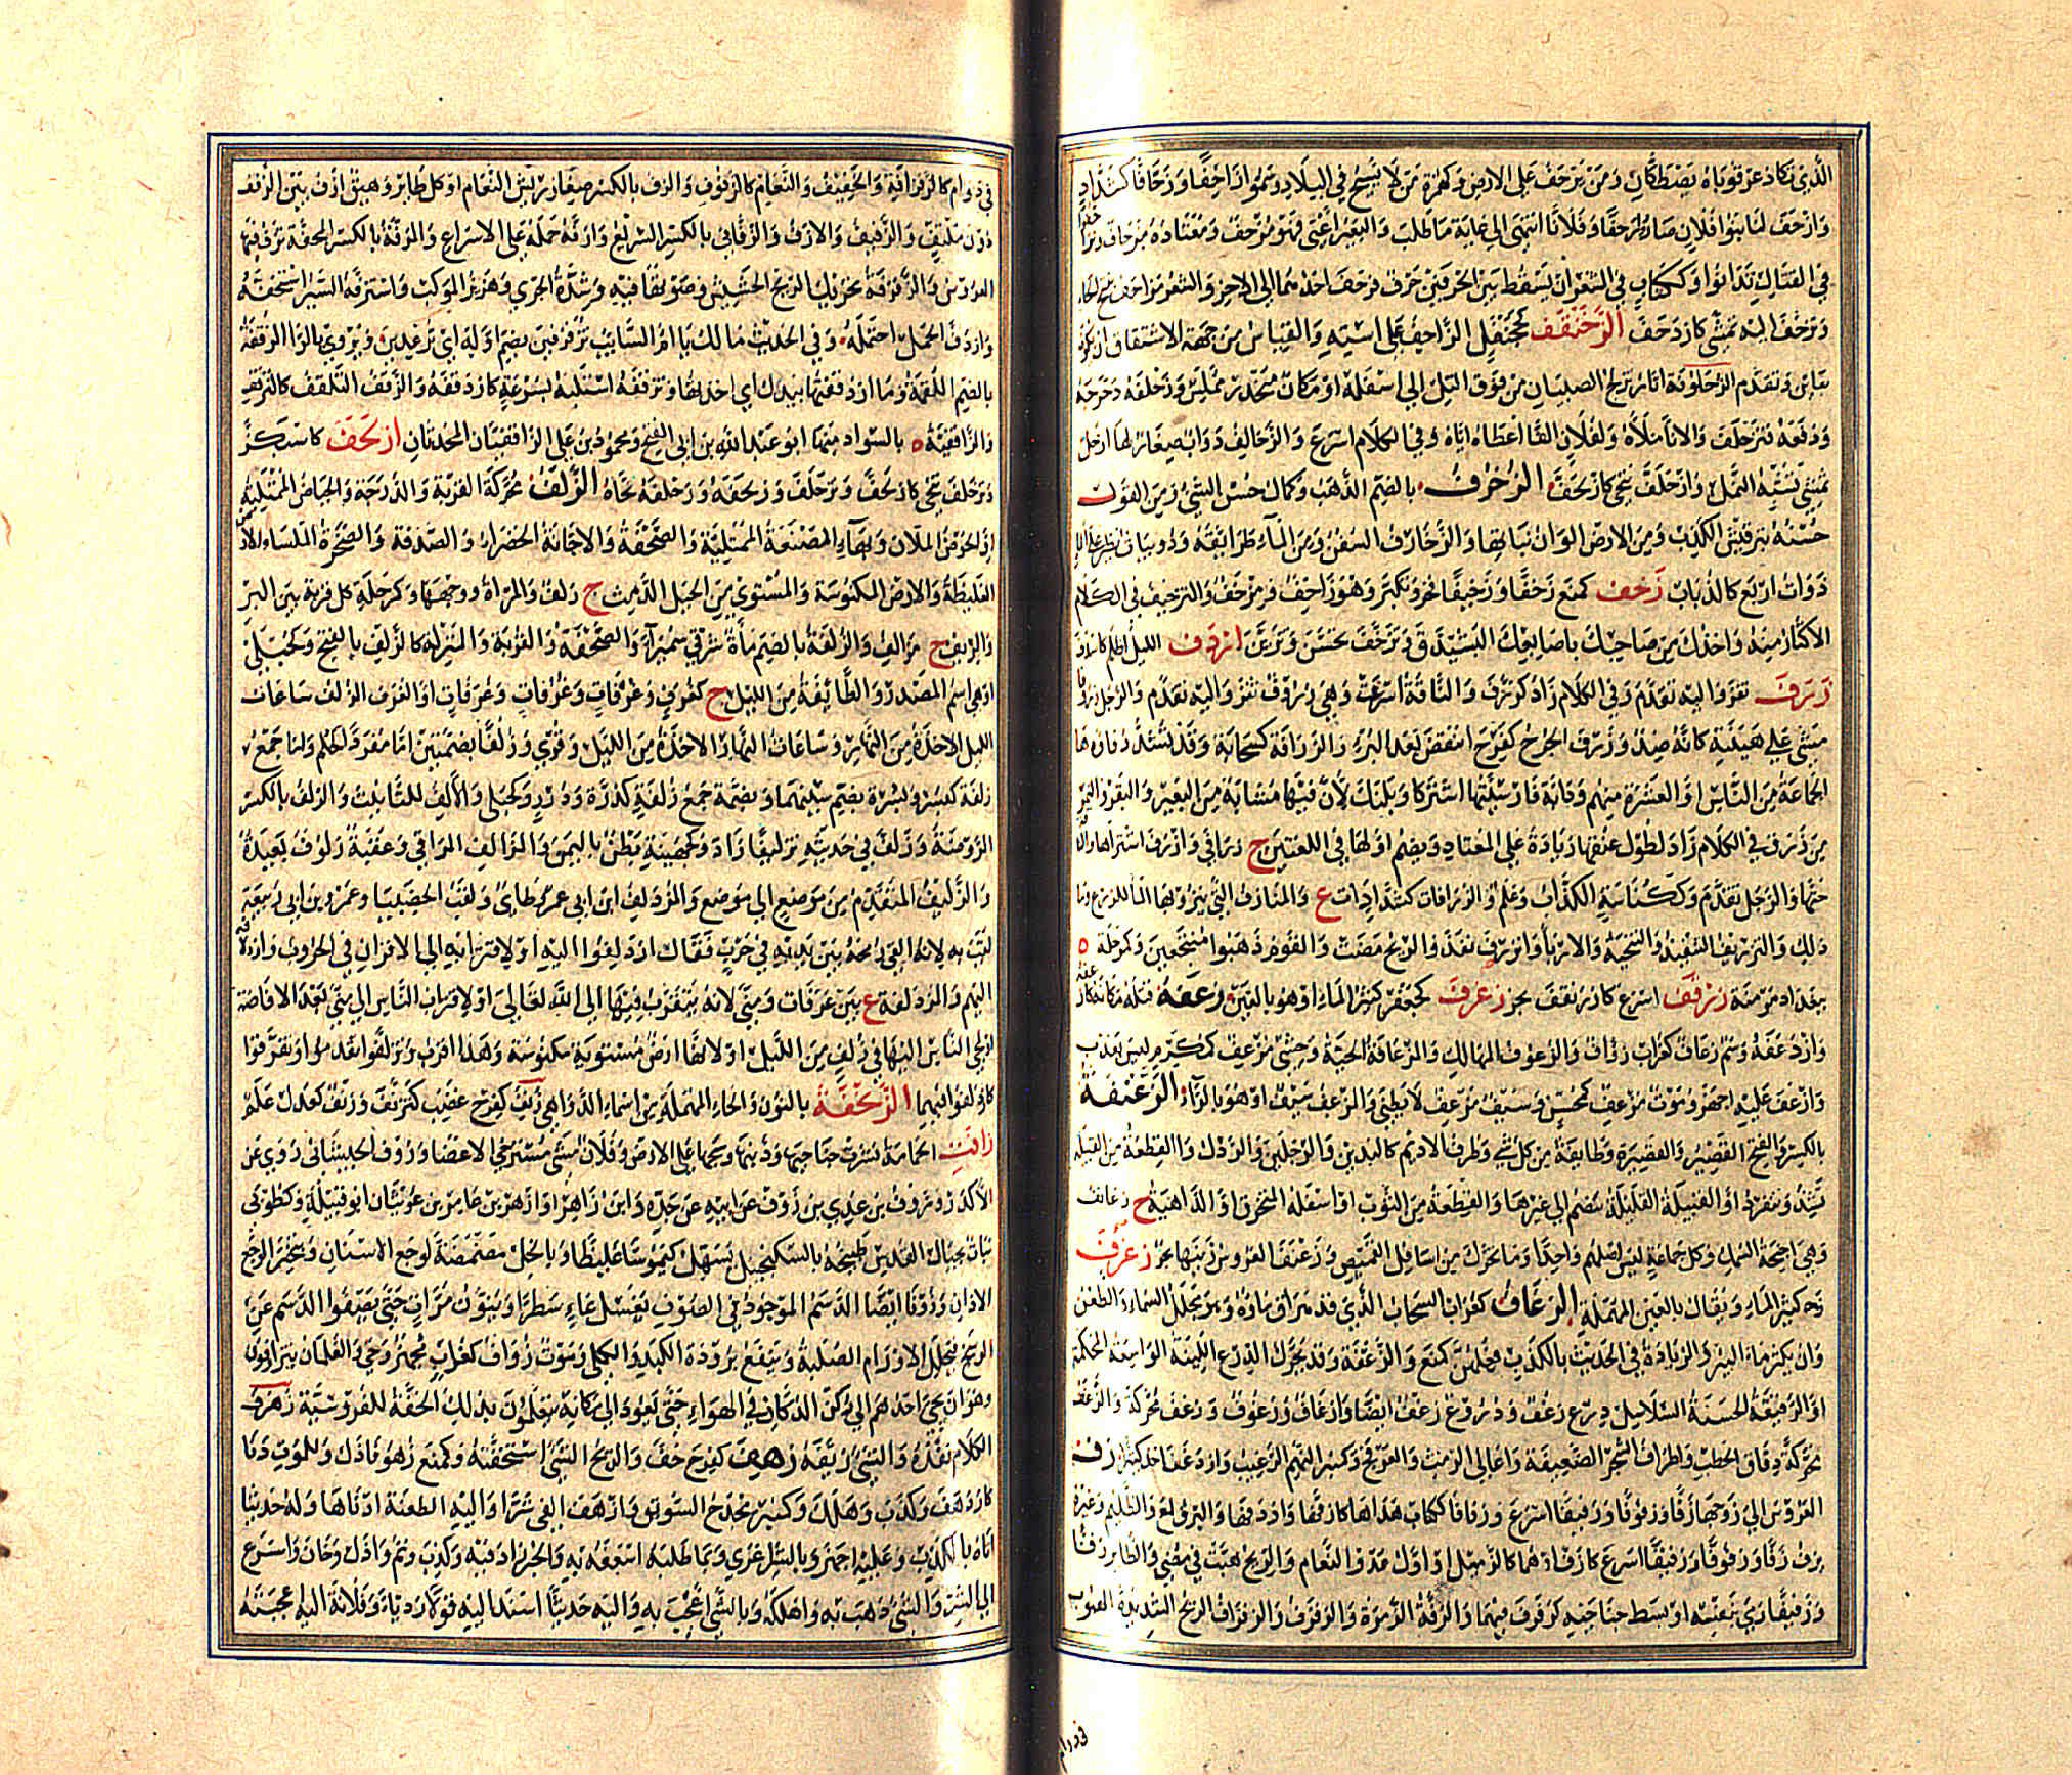 الذي تكاد عرقوباه يصطكان ومن يزحف على الارض وكهمزة من لا يسيح في البلاد وسموا زاحفا وزحافا كشداد
وازحف لنا بنوا فلان صاروا زحفا وفلانا انتهى الى غاية ما طلب والبعير اعيى فهو مزحف ومعتاده مزحاف
في القتال تدانوا وككتاب في الشعر ان يسقط بين الحرفين حرف فزحف احدهما الى الاخر والشعر مزاحف بفتح الحاء
وتزحف اليه تمشى كازدحف الزحنقف كجحنفل الزاحف على استه والقياس من جهة الاشتقاق ان يكون
بقافين وتقدم الزحلوفة اثار تزلج الصبيان من فوق التل الى اسفله او مكان منحدر مملس وزحلفه دحرجه
ودفعه فتزحلف والاناء ملأه ولفلان الفا اعطاه اياه وفي الكلام اسرع والزحالف دواب صغار لها ارجل
تمشي شبه النمل وازحلف تنحى كازلحف الزخرف بالضم الذهب وكمال حسن الشيء ومن القول
حسنه بترقيش الكذب ومن الارض الوان نباتها والزخارف السفن ومن الماء طرائقه ودويبات تطير على الماء
ذوات اربع كالذباب زخف كمنع زخفا وزخيفا فخر وتكبر وهو زاخف ومزخف والتزخيف في الكلام
الاكثار منه واخذك من صاحبك باصابعك الشيذق وتزخف تحسن وتزين ازدف الليل اظلم كاسدف
زرف قفز واليه تقدم وفي الكلام زاد كزرف والناقة اسرعت وهي زروف قفز واليه تقدم والرجل زريفا
مشى على هينته كانه ضد وزرف الجرح كفرح انتقض بعد البرء والزرافة كسحابة وقد تشدد فاءها
الجماعة من الناس او العشرة منهم ودابة فارسيتها اشتركاو بلنك لان فيها مشابه من البعير والبقر والنمر
من زرف في الكلام زاد لطول عنقها زيادة على المعتاد ويضم اولها في اللغتين ج زرافى وازرف اشتراها
خثها والرجل تقدم وككناسة الكذاب وعلم والزرافات كشدادات ع والمنازف التي ينزو بها الماء للزرع وما
ذلك والتزريف التنفيذ والتنحية والارباء وانزرف نفذ والريح مضت والقوم ذهبوا منتجعين وكمرحلة ه
ببغداد مزمنة زرقف اسرع كازرنقف بحر زغرف كجعفر كثير الماء او هو بالتين زعفه قتله مكانه كازعفه
وازدعفه وسم زعاف كغراب زؤاف والزعوف المهالك والزعافة الحية وحشى مزعف كمكرم ليس بعذب
وازعف عليه اجهز وموت مزعف كمحسن وسيف مزعف لا يطني والمزعف سيف او هو بالراء الزعنفة
بالكسر والفتح القصير والقصيرة وطائفة من كل شيء وطرف الاديم كاليدين والرجلين والرذل والقطعة من القبيلة
تشذ وتنفرد او القبيلة القليلة تنضم الى غيرها والقطعة من الثوب او اسفله المتخرق والداهية ج زعانف
وهي اجنحة السمك وكل جماعة ليس اصلهم واحدا وما تحرك من اسافل القميص وزعنف العروس زينها بحر زغرف
زحر كثير الماء ويقال بالعين المهملة الزغاف كغراب السحاب الذي قد هراق ماؤه وهو يجلل السماء والطعن
وان يكثر ماء البئر والزيادة في الحديث بالكذب فعلهن كمنع والزغفة وقد يحرك الدرع اللينة الواسعة المحكمة
او الرقيقة الحسنة السلاسل درع زغف ودروع زغف ايضا وازغاف وزغوف وزغف محركة والزغف
محركة دقاق الحطب واطراف الشجر الضعيفة واعالي الرمث والعرفج وكمنبر النهم الرغيب وازدغف اخذ كثيرا زف
العروس الى زوجها زفا وزفوفا وزفيفا اسرع وزفافا ككتاب هداها كازفها وازدفها والبرق لمع والظليم وغيره
يزف زفا وزفوفا وزفيفا اسرع كازف اوهما كالزميل او اول عدو النعام والريح هبت في مضي والطائر زفا
وزفيفا رمى بنفسه او بسط جناحيه كزفزف فيهما والزفة الزمرة والزفزف والزفزاف الريح الشديدة الهبوب
في دوام
في دوام كالزفزافة والخفيف والنعام كالزفوف والزف بالكسر صغار ريش النعام او كل طائر وهيق ازف بين الزفف
ذو زف ملتف والزفيف والازف والزفاني بالكسر السريع وازفه حمله على الاسراع والمزفة بالكسر المحفة تزف فيها
العروس والزفزفة تحريك الريح الحشيش وصوتها فيه وشدة الجري وهزيز الموكب واستزفه السير استخفته
وازدف الحمل احتمله وفي الحديث ما لك يا ام السائب تزفزفين بضم اوله اي ترعدين ويروى بالراء الزقفة
بالضم اللقمة وما ازدقفتها بيدك اي اخذتها وتزقفه استلبه بسرعة كازدقفه والزقف التلقف كالتزقف
والزاقفية ه بالسواد منها ابو عبد الله بن ابي الفتح ومحمود بن علي الزاقفيان المحدثان ازلحف كاسبكر
وتزحلف تنحى كازلحف وتزحلف وزلحفه وزحلفه نحاه الزلف محركة القربة والدرجة والحياض الممتلئة
او الحوض الملآن وبهاء المصنعة الممتلئة والصحفة والاجانة الخضراء والصدفة والصخرة الملساء والارض
الغليظة والارض المكنوسة والمستوي من الجبل الدمث ج زلف والمرآة ووجهها وكمرحلة كل قرية بين البر
والريف ج مزالف والزلفة بالضم ماءة شرقي سميراء والصحفة والقربة والمنزلة كالزلف بالفتح وكحبلى
او هي اسم المصدر والطائفة من الليل ج كغرف وغرفات وغرفات وغرفات او الغرف الزلف ساعات
الليل الاخذة من النهار وساعات النهار الاخذة من الليل وقرئ وزلفا بضمتين اما مفرد كحلم واما جمع
زلفة كبسر وبسرة بضم سينهما وبضمة جمع زلفة كدرة ودرر وكحبلى والالف للتانيث والزلف بالكسر
الروضة وزلف في حديثه تزليفا زاد وكجهينة بطن باليمن والزالف المراقي وعقبة زلوف بعيدة
والزليف المتقدم من موضع الى موضع والمزدلف ابن ابي عمرو طائي ولقب الخصيب او عمرو بن ابي ربيعة
لقب به لانه القى رمحه بين يديه في حرب فقال ازدلفوا اليه او لاقترابه الى الاقران في الحروب وازدلافه
اليهم والمزدلفة ع بين عرفات ومنى لانه يتقرب فيها الى الله تعالى او لاقتراب الناس الى منى بعد الافاضة
او لمجيء الناس اليها في زلف من الليل او لانها ارض مستوية مكنوسة وهذا اقرب وتزلفوا تقدموا وتفرقوا
كازدلفوا فيهما الزنحفة بالنون والحاء المهملة من اسماء الداهية زنف كفرح غضب كتزنف وزنف كعدل علم
زافت الحمامة نشرت جناحيها وذنبها وسحبتها على الارض وفلان مشى مسترخي الاعضاء وزوف الحبيشاني روى عن
الاكدر وزوف بن عدي بن زوف عن ابيه عن جده وابن زاهر او ازهر بن عامر بن عوبثان ابو قبيلة وكطوبى
نبات بجبال القدس طبيخه بالسكنجبين يسهل كيموسا غليظا وبالخل مضمضة لوجع الاسنان وبخر الوجع
الاذان وزوفا ايضا الدسم الموجود في الصوف يغسل بماء سطرا ويثون مرات حتى يصفوا الدسم عن
الوسخ فيحلل الاورام الصلبة وينفع برودة الكبد والكلى وموت زؤاف كغراب مجهز وحي والغلمان يتزاوفون
وهو ان يجيء احدهم الى ركن الدكان في الهواء حتى يعود الى مكانه يتعلمون بذلك الخفة للفروسية زهرف
الكلام نفذه والشيء زيفه زهف كفرح خف والريح الشيء استخفته وكمنع زهوفا ذل وللموت دنا
كازدهف وكذب وهلك وكمنبر مجدح السويق وازهف القى شرا واليه الطعنة ادناها وله حديثا
اتاه بالكذب وعليه اجهز وبالشر اغرى وبما طلبه اسعفه به والخبر زاد فيه وكذب ونم واذل وخان واسرع
الى الشر والشيء ذهب به واهلكه وبالشيء اعجب به واليه حديثا اسند اليه قولا رديا وفلانة اليه اعجبته